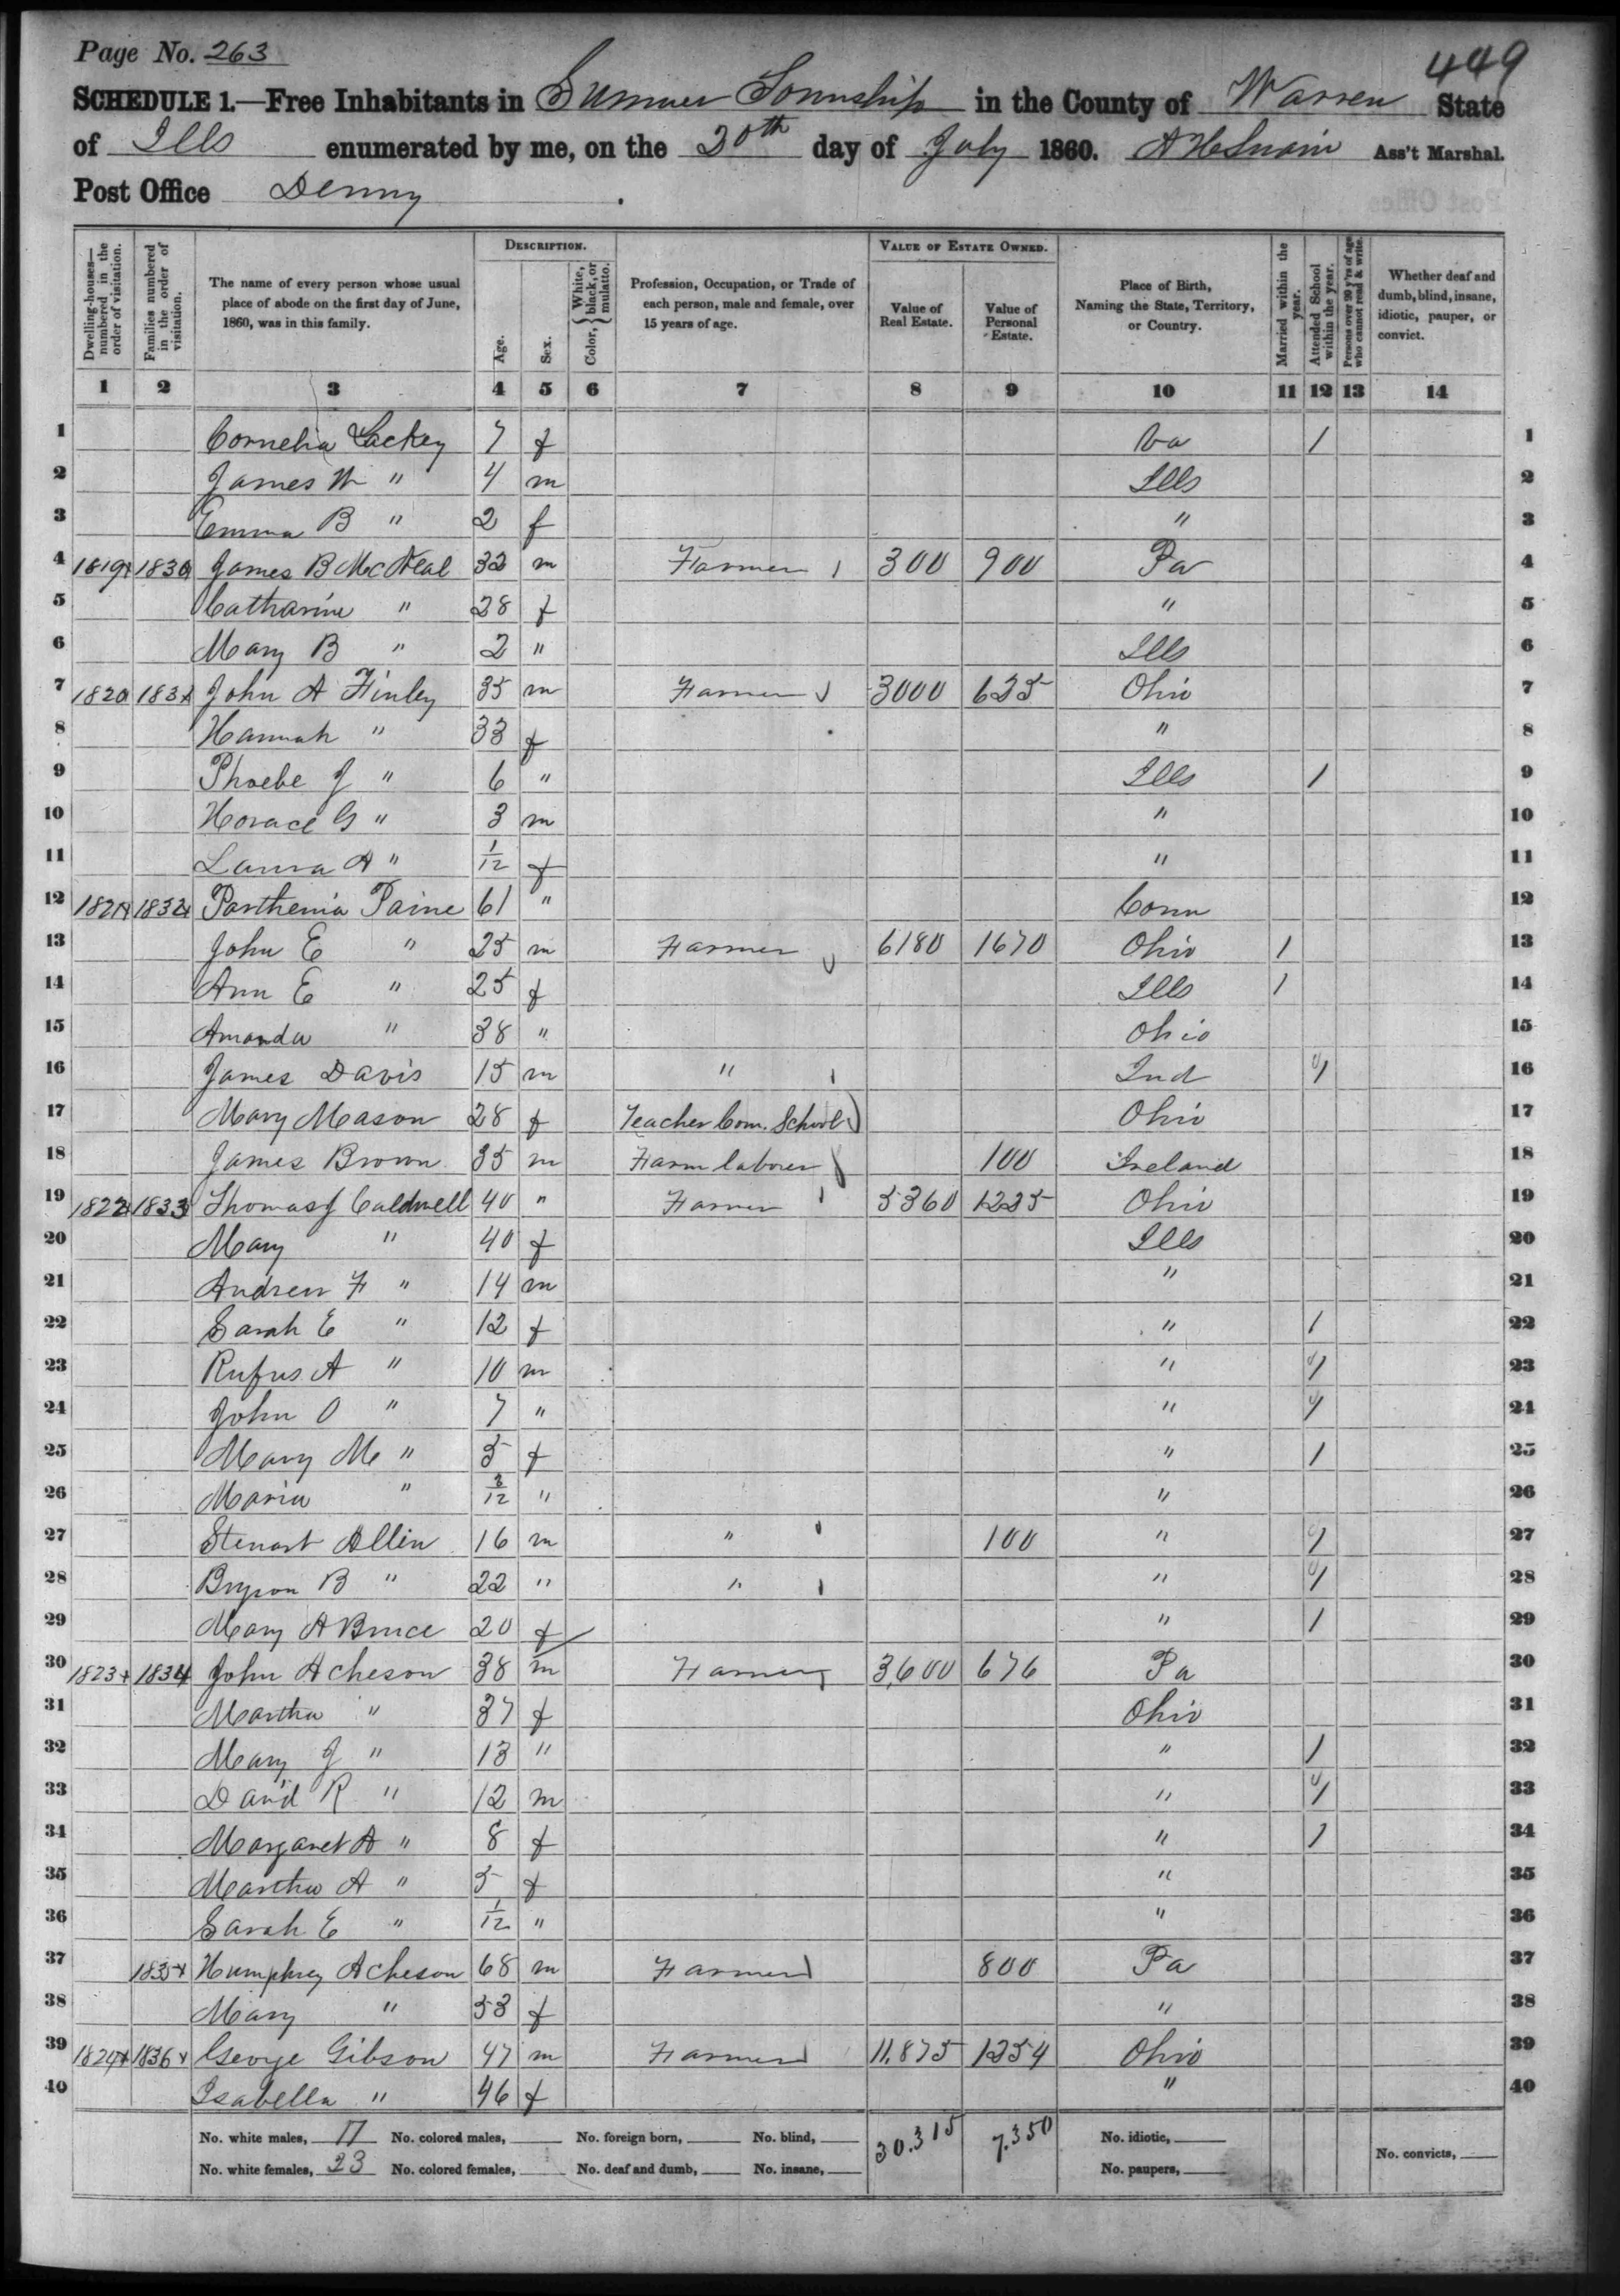 Page No. 263
449
SCHEDULE 1.—Free Inhabitants in Sumner Township in the County of Warren State
of Ills enumerated by me, on the 20th day of July 1860. Ass't Marshal.
Post Office Denny
Dwelling-houses—numbered in the order of visitation.
Families numbered in the order of visitation.
The name of every person whose usual place of abode on the first day of June, 1860, was in this family.
DESCRIPTION.
Age.
Sex.
Color, White, black, or mulatto.
Profession, Occupation, or Trade of each person, male and female, over 15 years of age.
VALUE OF ESTATE OWNED.
Value of Real Estate.
Value of Personal Estate.
Place of Birth, Naming the State, Territory, or Country.
Married within the year.
Attended School within the year.
Persons over 20 y'rs of age who cannot read & write.
Whether deaf and dumb, blind, insane, idiotic, pauper, or convict.
1 2 3 4 5 6 7 8 9 10 11 12 13 14
1 Cornelia Lackey 7 f Va 1 1
2 James W " 4 m Ills 2
3 Emma B " 2 f " 3
4 1819 1830 James B McNeal 32 m Farmer 300 900 Pa 4
5 Catharine " 28 f " 5
6 Mary B " 2 " Ills 6
7 1820 1831 John A Finley 35 m Farmer 3000 635 Ohio 7
8 Hannah " 33 f " 8
9 Phoebe J " 6 " Ills 1 9
10 Horace G " 3 m " 10
11 Laura A " 1/12 f " 11
12 1821 1832 Parthenia Paine 61 " Conn 12
13 John E " 25 m Farmer 6180 1670 Ohio 1 13
14 Ann E " 25 f Ills 1 14
15 Amanda " 38 " Ohio 15
16 James Davis 15 m " Ind 1 16
17 Mary Mason 28 f Teacher Com. School Ohio 17
18 James Brown 35 m Farm laborer 100 Ireland 18
19 1822 1833 Thomas J Caldwell 40 " Farmer 5360 1225 Ohio 19
20 Mary " 40 f Ills 20
21 Andrew F " 14 m " 21
22 Sarah E " 12 f " 1 22
23 Rufus A " 10 m " 1 23
24 John O " 7 " " 1 24
25 Mary M " 5 f " 1 25
26 Maria " 3/12 " " 26
27 Stewart Allin 16 m " 100 " 1 27
28 Bryson B " 22 " " " 1 28
29 Mary A Bruce 20 f " 1 29
30 1823 1834 John Acheson 38 m Farmer 3,600 676 Pa 30
31 Martha " 37 f Ohio 31
32 Mary J " 13 " " 1 32
33 David R " 12 m " 1 33
34 Margaret A " 8 f " 1 34
35 Martha A " 5 f " 35
36 Sarah E " 1/12 " " 36
37 1835 Humphrey Acheson 68 m Farmer 800 Pa 37
38 Mary " 53 f " 38
39 1824 1836 George Gibson 47 m Farmer 11,875 1254 Ohio 39
40 Isabella " 46 f " 40
No. white males, 17 No. colored males, No. foreign born, No. blind, 30.315 7.350 No. idiotic, No. convicts,
No. white females, 23 No. colored females, No. deaf and dumb, No. insane, No. paupers,